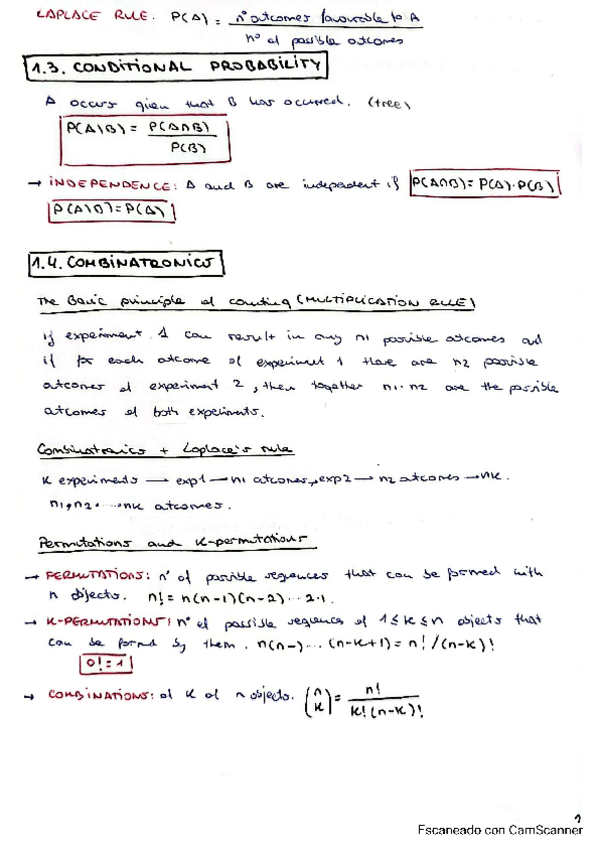 LAPLACE RULE. P(A) = nº outcomes favorable to A
nº of possible outcomes
1.3. CONDITIONAL PROBABILITY
A occurs given that B has occurred. (tree)
P(A\B) = P(A∩B)
P(B)
→ INDEPENDENCE: A and B are independent if P(A∩B) = P(A)·P(B)
P(A\B) = P(A)
1.4. COMBINATRONICS
The Basic principle of counting (MULTIPLICATION RULE)
if experiment 1 can result in any n1 possible outcomes and
if for each outcome of experiment 1 there are n2 possible
outcomes of experiment 2, then together n1·n2 are the possible
outcomes of both experiments.
Combinatronics + Laplace's rule
K experiments → exp1 → n1 outcomes, exp2 → n2 outcomes → nK.
n1, n2. ... nK outcomes.
Permutations and K-permutations
→ PERMUTATIONS: nº of possible sequences that can be formed with
n objects. n! = n(n-1)(n-2)...2·1.
→ K-PERMUTATIONS: nº of possible sequences of 1≤K≤n objects that
can be formed by them. n(n-)...(n-K+1) = n! /(n-K)!
0! = 1
→ COMBINATIONS: of K of n objects. (n K) = n!
K!(n-K)!
1
Escaneado con CamScanner